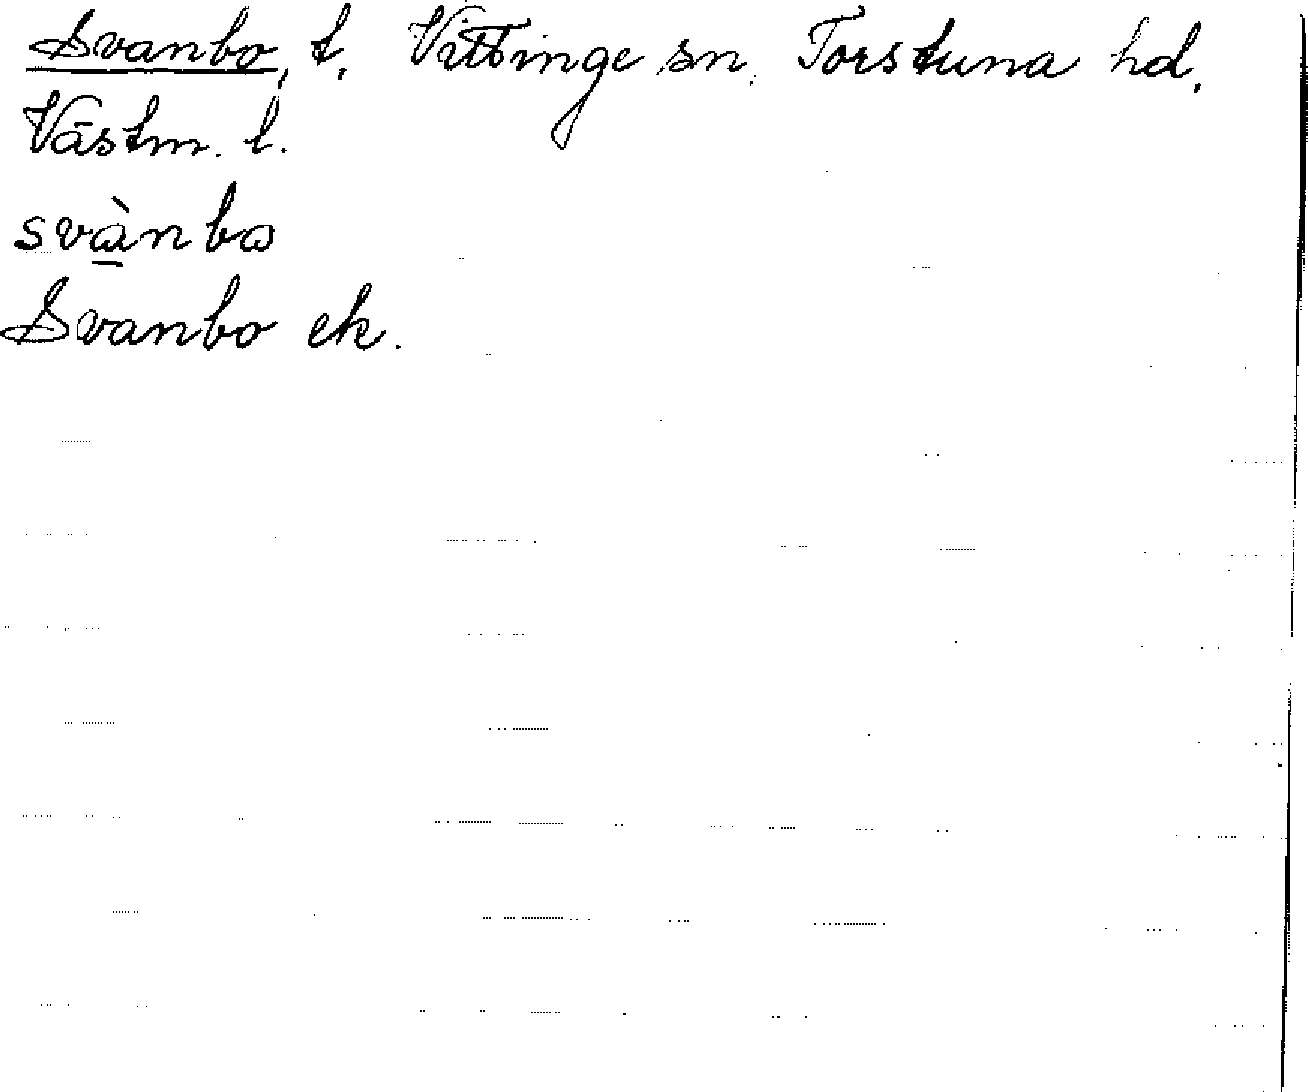 Svanbo, t. Vittinge sn. Torstuna hd.
Västm. l.
svà̲nbω
Svanbo ek.